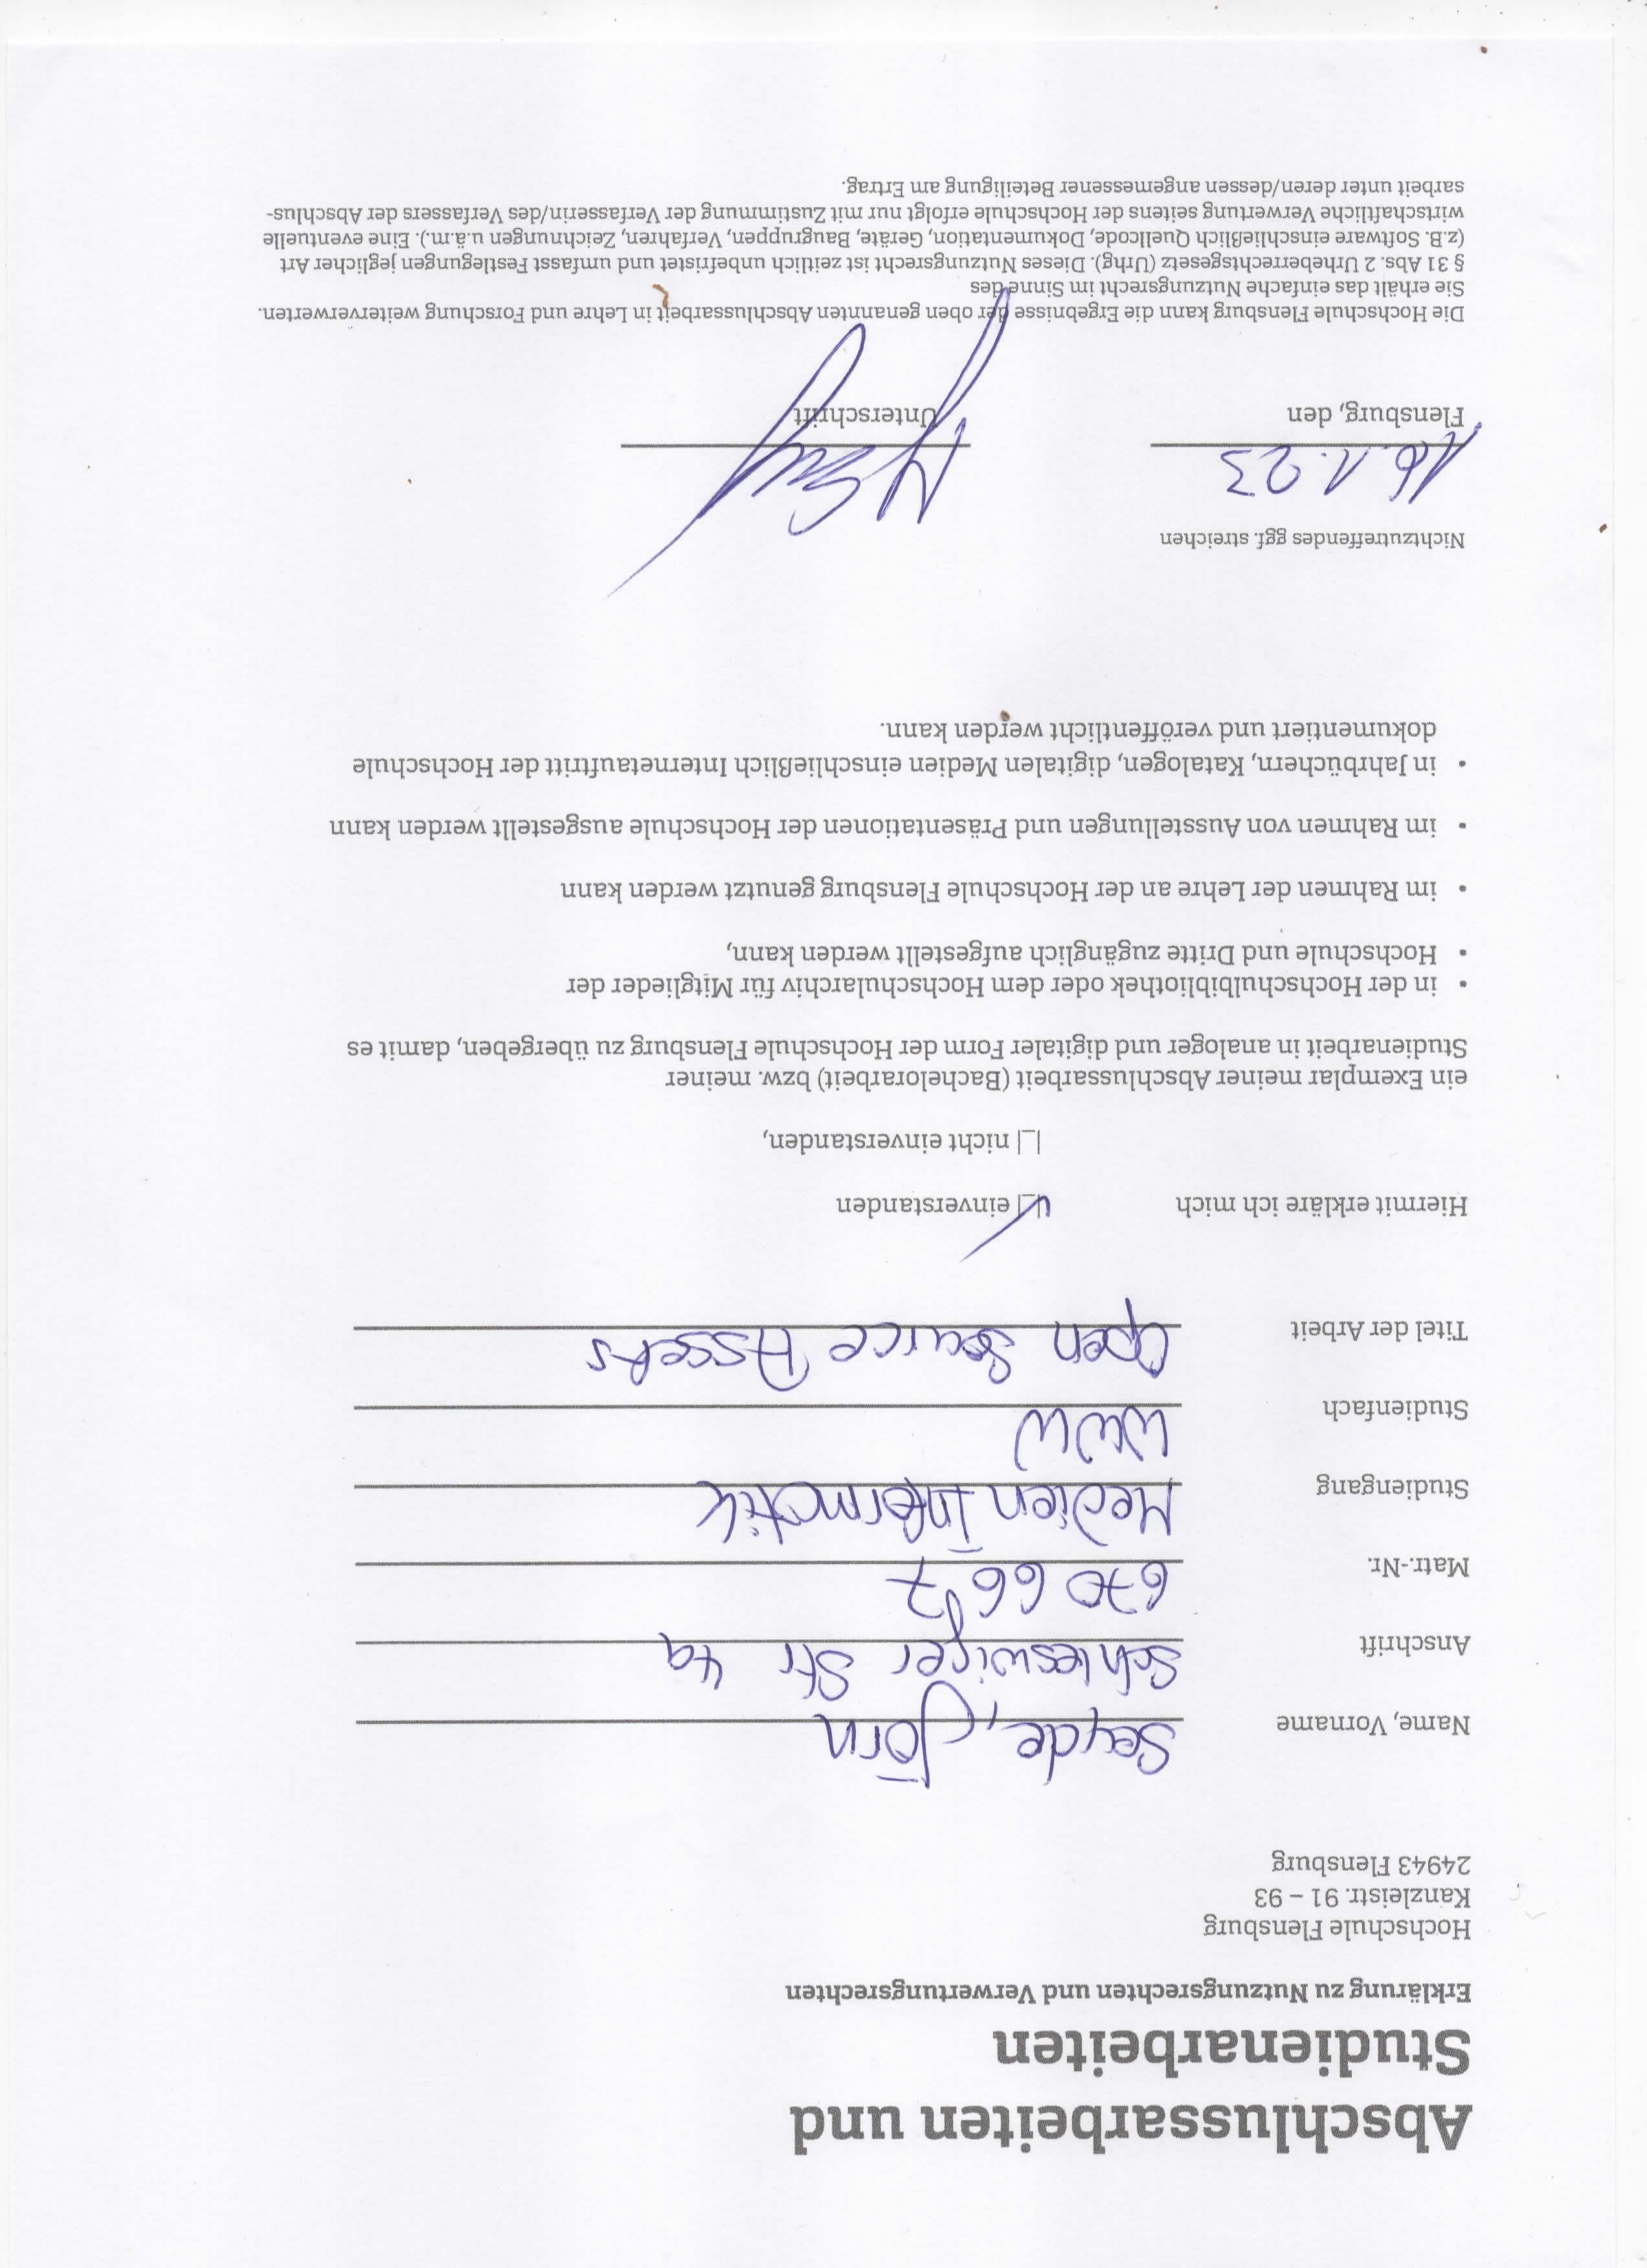 Abschlussarbeiten und
Studienarbeiten
Erklärung zu Nutzungsrechten und Verwertungsrechten
Hochschule Flensburg
Kanzleistr. 91 – 93
24943 Flensburg
Name, Vorname Seyde, Jörn
Anschrift Schleswiger Str 4a
Matr.-Nr. 670667
Studiengang Medien Informatik
Studienfach WWW
Titel der Arbeit Open Source Assets
Hiermit erkläre ich mich einverstanden
nicht einverstanden,
ein Exemplar meiner Abschlussarbeit (Bachelorarbeit) bzw. meiner
Studienarbeit in analoger und digitaler Form der Hochschule Flensburg zu übergeben, damit es
• in der Hochschulbibliothek oder dem Hochschularchiv für Mitglieder der
• Hochschule und Dritte zugänglich aufgestellt werden kann,
• im Rahmen der Lehre an der Hochschule Flensburg genutzt werden kann
• im Rahmen von Ausstellungen und Präsentationen der Hochschule ausgestellt werden kann
• in Jahrbüchern, Katalogen, digitalen Medien einschließlich Internetauftritt der Hochschule
dokumentiert und veröffentlicht werden kann.
Nichtzutreffendes ggf. streichen
16.1.23
Flensburg, den Unterschrift
Die Hochschule Flensburg kann die Ergebnisse der oben genannten Abschlussarbeit in Lehre und Forschung weiterverwerten.
Sie erhält das einfache Nutzungsrecht im Sinne des
§ 31 Abs. 2 Urheberrechtsgesetz (Urhg). Dieses Nutzungsrecht ist zeitlich unbefristet und umfasst Festlegungen jeglicher Art
(z.B. Software einschließlich Quellcode, Dokumentation, Geräte, Baugruppen, Verfahren, Zeichnungen u.ä.m.). Eine eventuelle
wirtschaftliche Verwertung seitens der Hochschule erfolgt nur mit Zustimmung der Verfasserin/des Verfassers der Abschlus-
sarbeit unter deren/dessen angemessener Beteiligung am Ertrag.